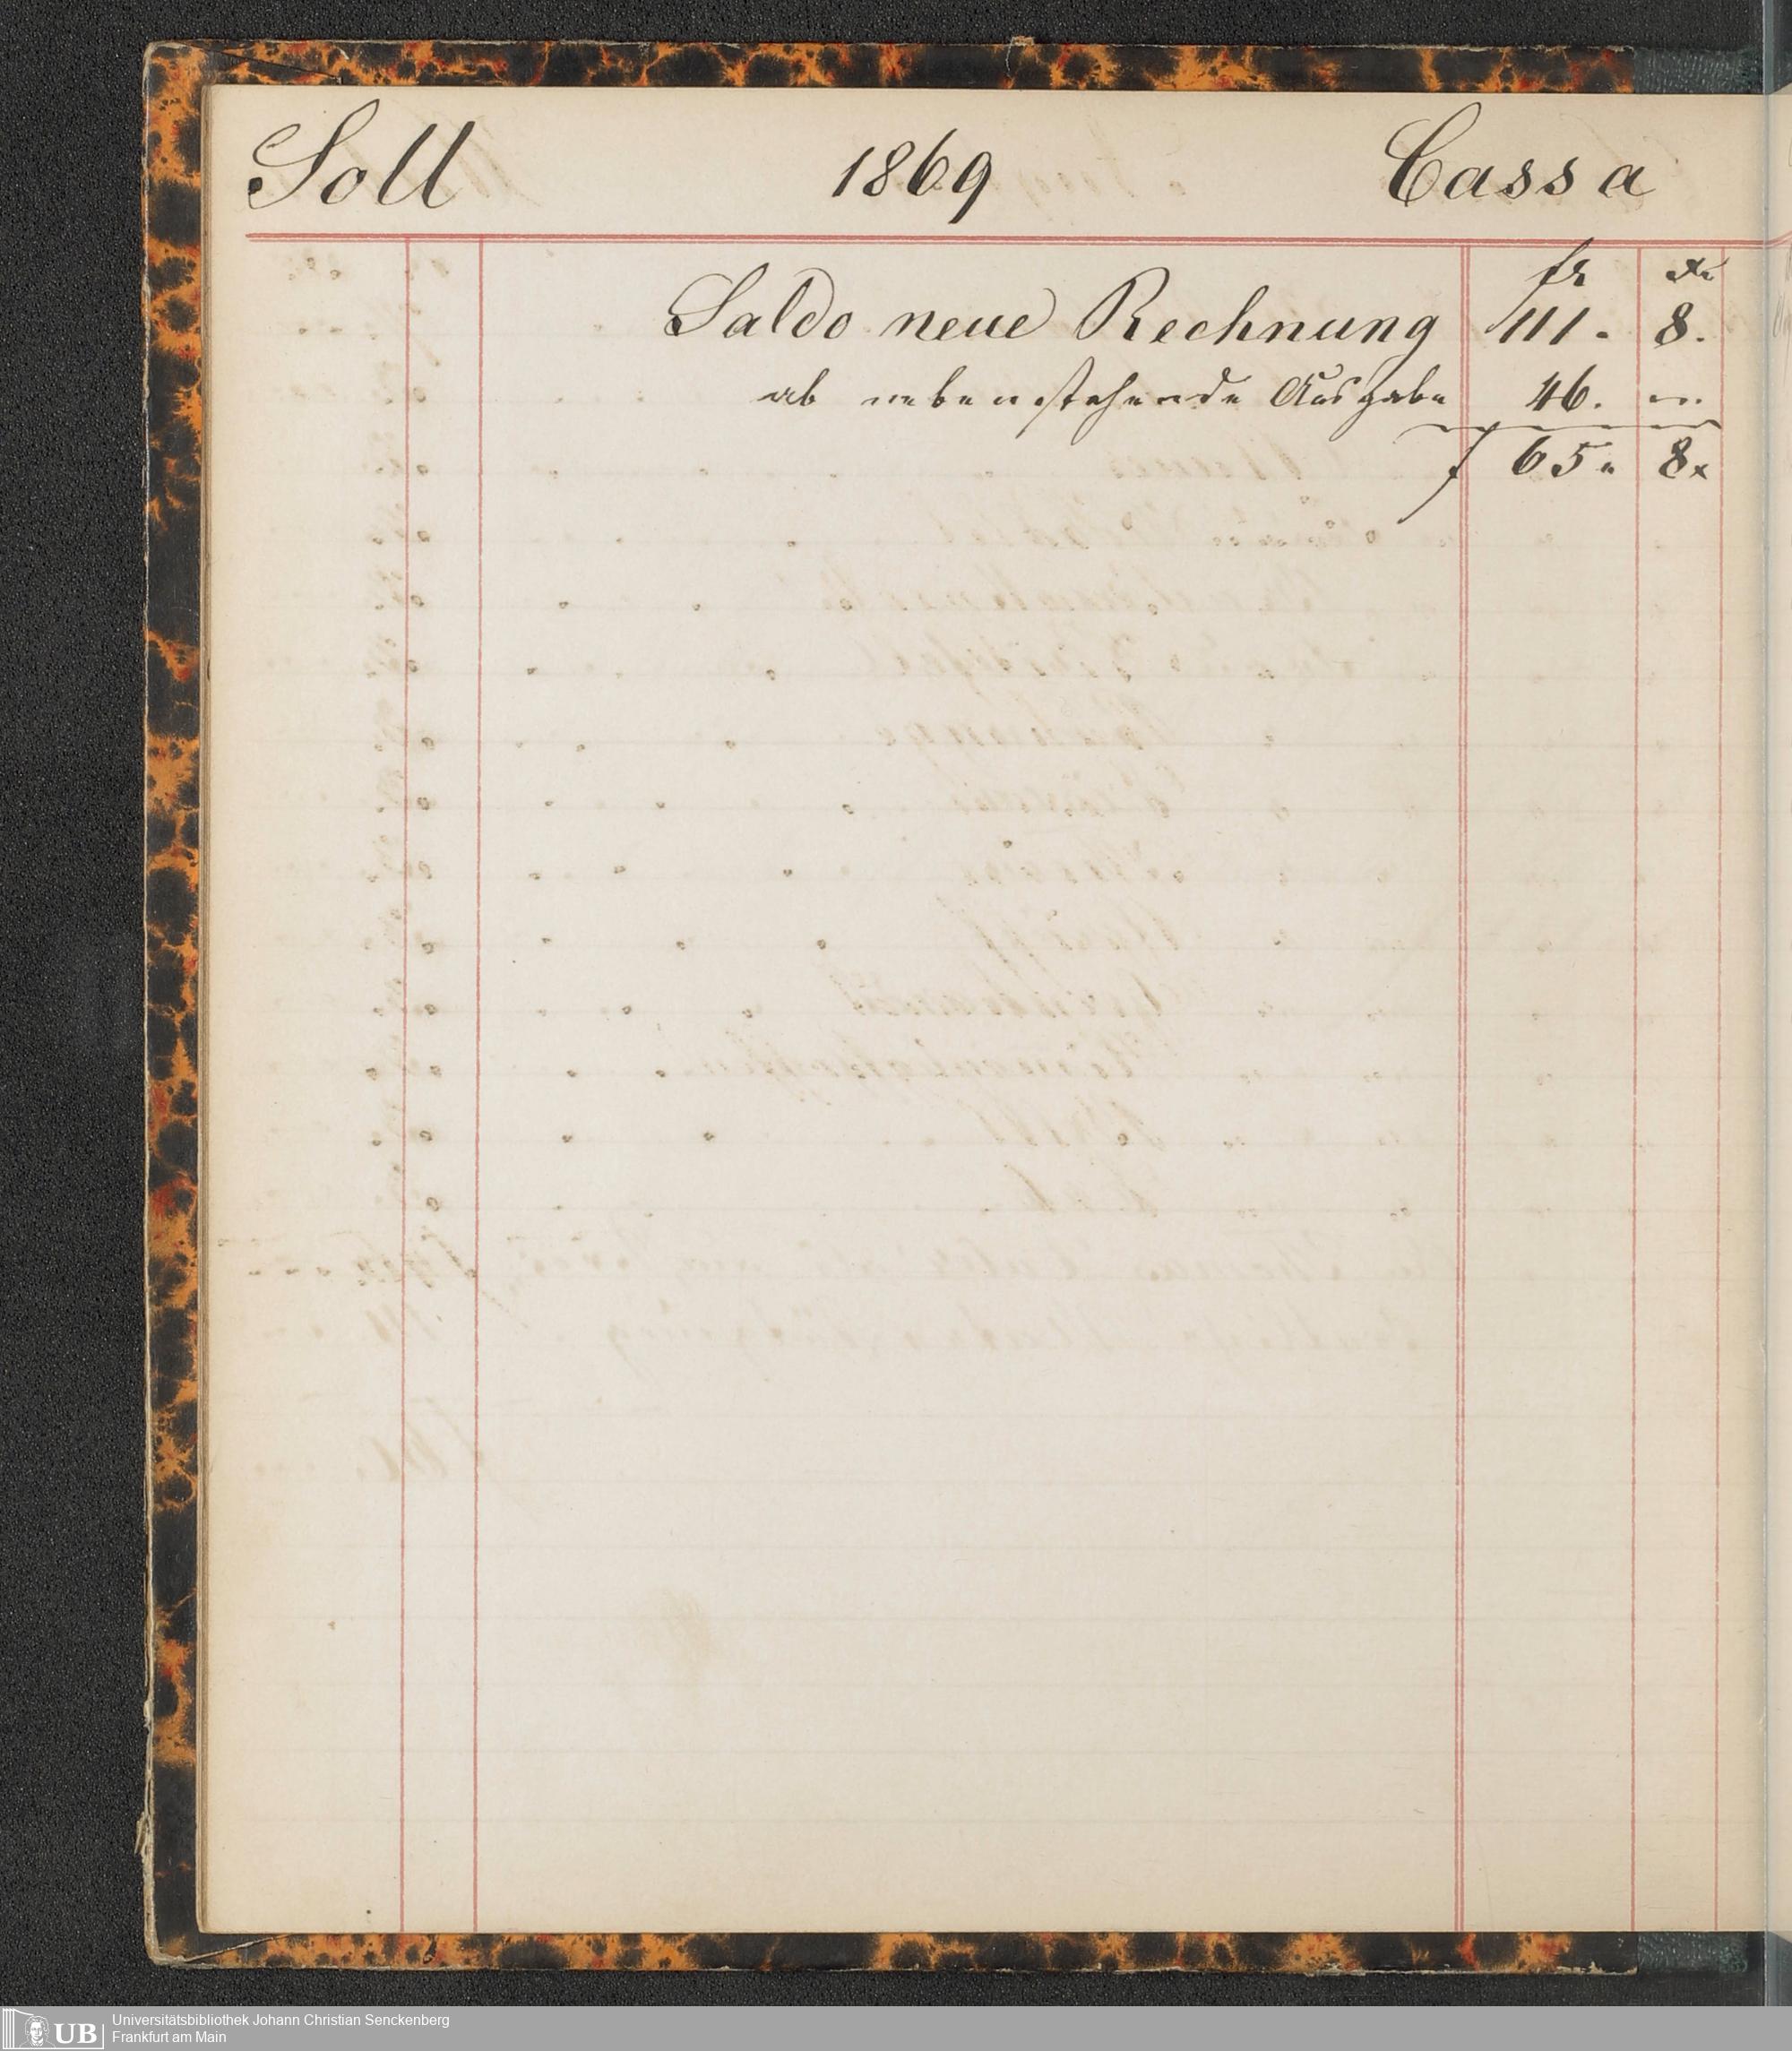 Soll 1869 Cassa
fr xr
Saldo neue Rechnung 111. 8.
ab nebenstehende Ausgabe 46. "
f 65. 8x
UB Universitätsbibliothek Johann Christian Senckenberg
Frankfurt am Main